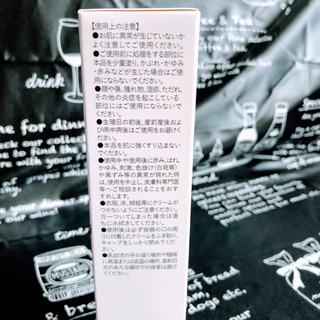 【使用上の注意】
●お肌に異常が生じていないか
よく注意してご使用ください。
●ご使用前に処理をする部位に
本品を少量塗り、かぶれ・かゆみ
・赤みなどが生じた場合はご使用
にならないでください。
●顔や傷、腫れ物、湿疹、ただれ、
その他の炎症を起こしている
部位にはご使用にならないで
ください。
●生理日の前後、産前産後およ
び病中病後はご使用をお避けく
ださい。
●本品を肌に強くすり込まない
でください。
●使用中や使用後に赤み、はれ、
かゆみ、刺激、色抜け(白斑等)
や黒ずみ等の異常が現れた時
は、使用を中止し、皮膚科専門医
等へご相談されることをおすす
めします。
●衣服、床、絨毯等にクリームが
つかないようにご注意ください。
万一ついてしまった場合は直
ちに水拭きしてください。
●使用後は必ず容器の口の周
りに付着したクリームをふき取り、
キャップをしっかり閉めてくださ
い。
●乳幼児の手の届く場所や極
端に高温または低温の場所、直射日
光のあたる場所での保管は避け
てください。
drink
time for dinner
MUSTARD
ee & Tea
of bread
dogs etc.